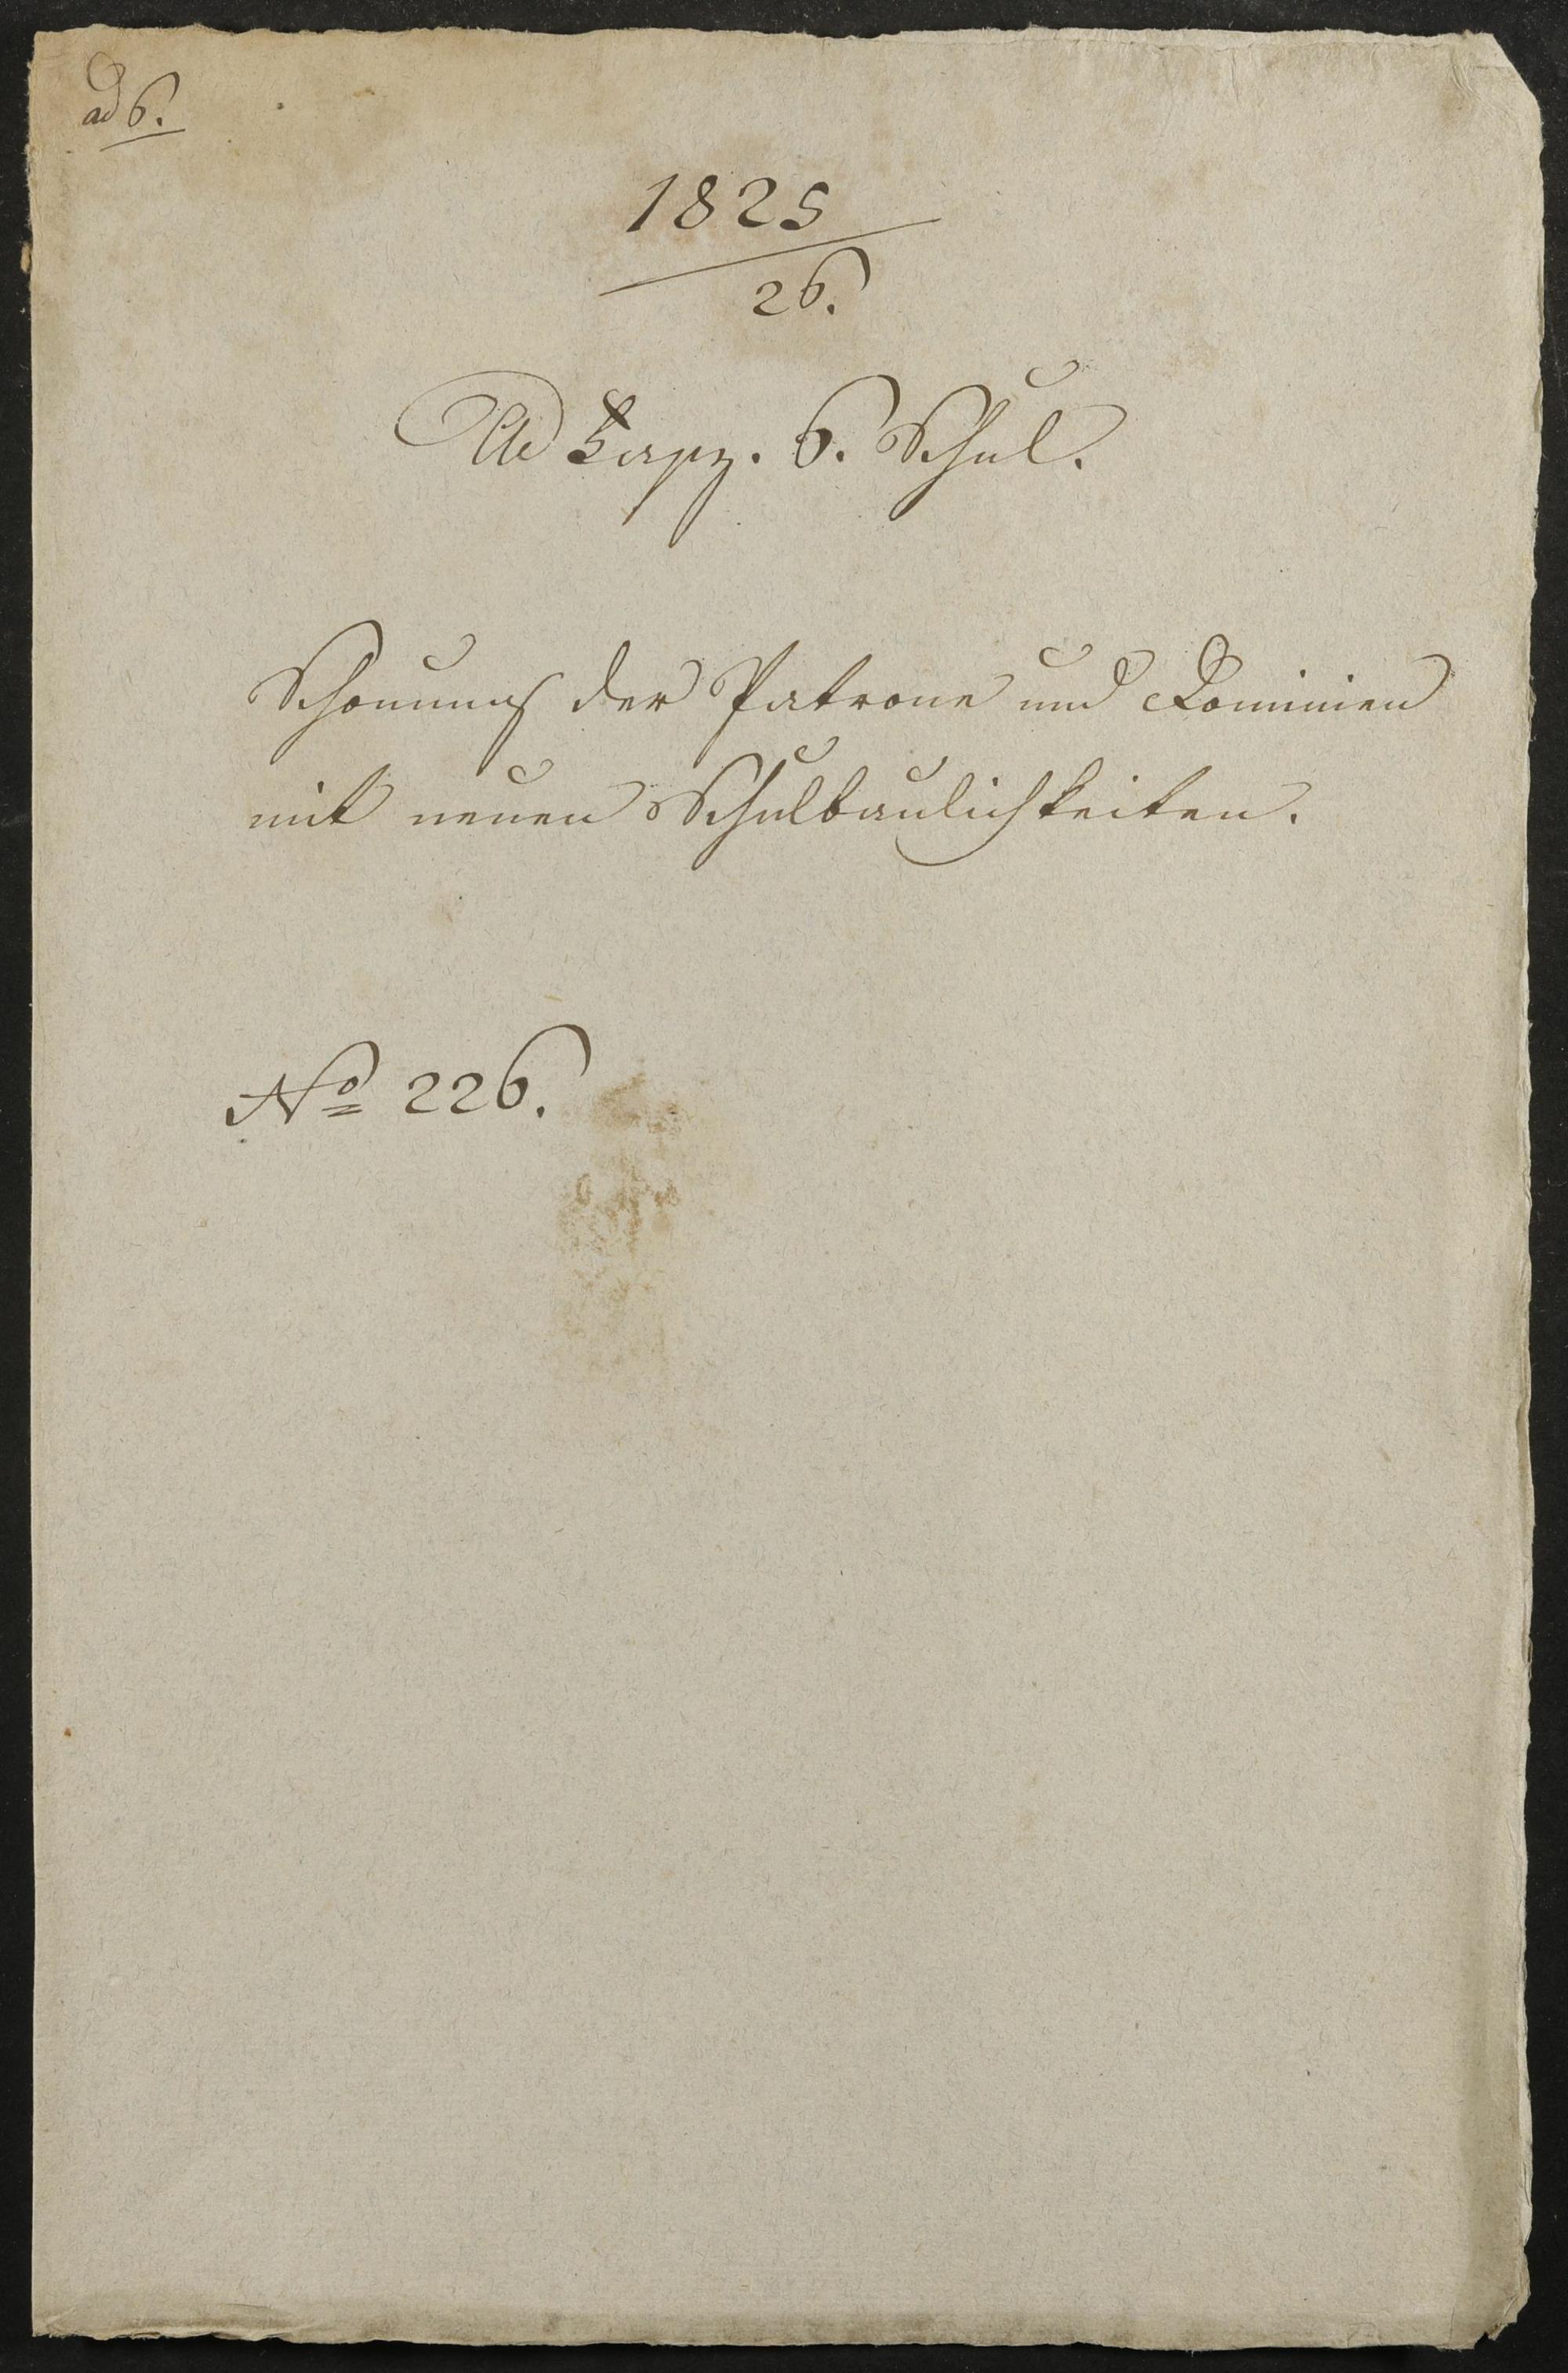 ad 6.
1825
26.
Ad Fasz. 6. Schul.
Schonung der Patrone und Dominien
mit neuen Schulbaulichkeiten.
No 226.